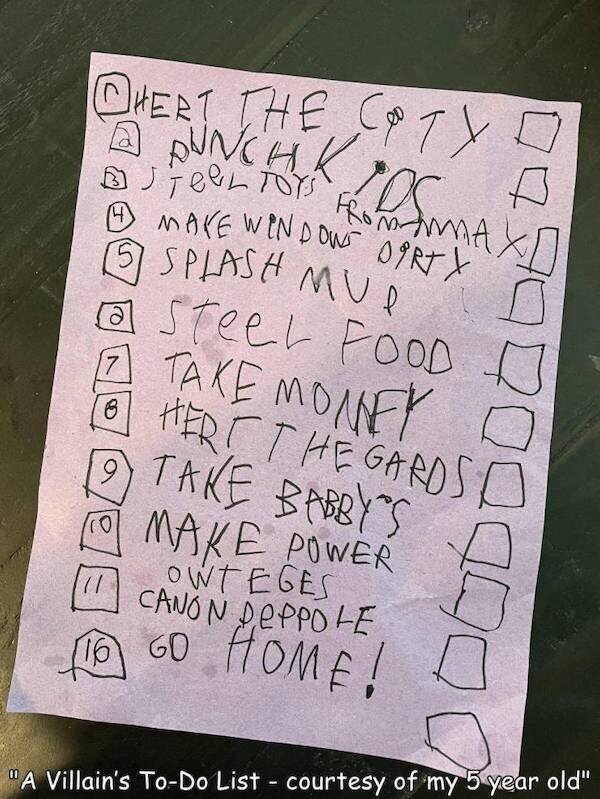 1 HERT THE CITY
2 PUNCH KIDS
3 STEEL TOYS FROM MAX
4 MAKE WINDOWS DIRTY
5 SPLASH MUD
6 STEEL FOOD
7 TAKE MONNEY
8 HERT THE GARDS
9 TAKE BABBY'S
10 MAKE POWER
OWTEGES
11 CANON PEPPOLE
16 GO HOME!
"A Villain's To-Do List - courtesy of my 5 year old"